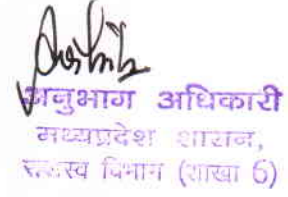 अनुभाग अधिकारी
मध्यप्रदेश शासन,
राजस्व विभाग (शाखा 6)